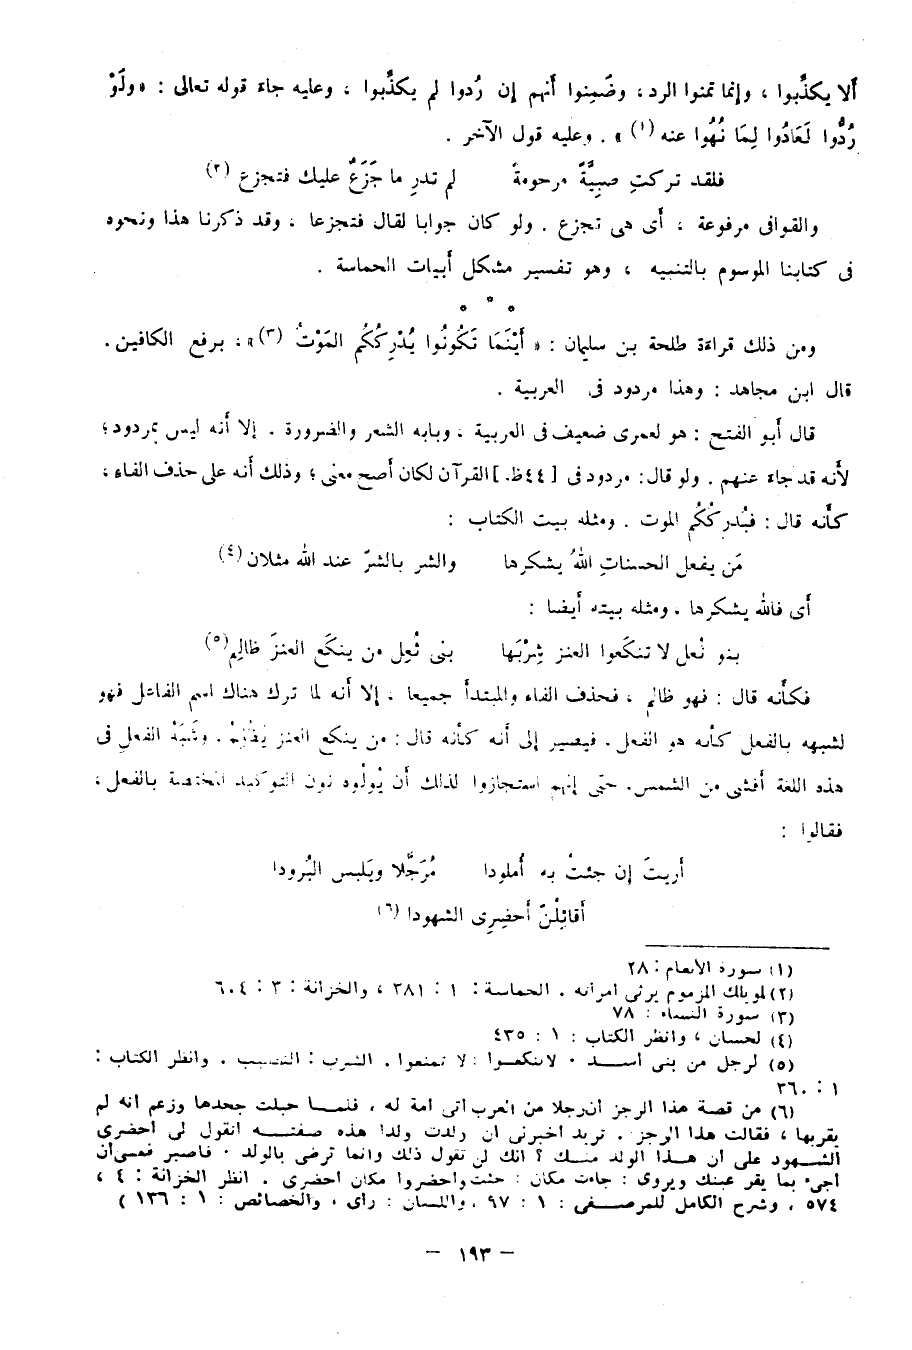 ألا يكذِّبوا ، وإنما تمنوا الرد، وضَمِنوا أنهم إن رُدوا لم يكذِّبوا ، وعليه جاء قوله تعالى : « ولَوْ
رُدُّوا لَعَادُوا لِمَا نُهُوا عنه (١) » . وعليه قول الآخر .
فلقد تركتِ صبيَّةً مرحومةً لم تدرِ ما جَزَعٌ عليك فتجزع (٢)
والقوافى مرفوعة ، أى هى تجزع . ولو كان جوابا لقال فتجزعا ، وقد ذكرنا هذا ونحوه
فى كتابنا الموسوم بالتنبيه ، وهو تفسير مشكل أبيات الحماسة .
* * *
ومن ذلك قراءة طلحة بن سليمان : « أَيْنَمَا تَكُونُوا يُدْرِكُكُم المَوْتُ (٣) » ، برفع الكافين .
قال ابن مجاهد : وهذا مردود فى العربية .
قال أبو الفتح : هو لعمرى ضعيف فى العربية ، وبابه الشعر والضرورة . إلا أنه ليس بمردود ؛
لأنه قد جاء عنهم . ولو قال : مردود فى [ ٤٤ظ. ] القرآن لكان أصح معنى ؛ وذلك أنه على حذف الفاء ،
كأنه قال : فيُدركُكُم الموت . ومثله بيت الكتاب :
مَن يفعل الحسناتِ اللهُ يشكرها والشر بالشرّ عند الله مثلان (٤)
أى فالله يشكرها . ومثله بيته أيضا :
بنو ثُعل لا تنكَعوا العنز شِرْبَها بنى ثُعِل من ينكَع العنزَ ظالِم (٥)
فكأنه قال : فهو ظالم ، فحذف الفاء والمبتدأ جميعا . إلا أنه لما ترك هناك اسم الفاعل فهو
لشبهه بالفعل كأنه هو الفعل . فيصير إلى أنه كأنه قال : من ينكع العنز يَظْلِمْ . وشَبَهُ الفعل فى
هذه اللغة أفشى من الشمس. حتى إنهم استجازوا لذلك أن يُولُوه نون التوكيد المختصة بالفعل ،
فقالوا :
أريتَ إن جئتْ به أُملودا مُرَجَّلا ويَلبس البُرودا
أقائِلُنّ أحضِرى الشهودا (٦)
(١) سورة الأنعام : ٢٨
(٢) لمويلك المزموم يرثى امرأته . الحماسة : ١ : ٣٨١ ، والخزانة : ٣ : ٦٠٤
(٣) سورة النساء : ٧٨
(٤) لحسان ، وانظر الكتاب : ١ : ٤٣٥
(٥) لرجل من بنى أسد . لا تنكعوا : لا تمنعوا . الشرب : النصيب . وانظر الكتاب :
١ : ٣٦٠
(٦) من قصة هذا الرجز أن رجلا من العرب أتى أمة له ، فلما حبلت جحدها وزعم أنه لم
يقربها ، فقالت هذا الرجز . تريد أخبرنى ان ولدت ولدا هذه صفته أتقول لى أحضرى
الشهود على ان هذا الولد منك ؟ انك لن تقول ذلك وانما ترضى بالولد . فاصبر فعسى أن
أجىء بما يقر عينك ويروى : جاءت مكان : جئت وأحضروا مكان أحضرى . انظر الخزانة : ٤ ،
٥٧٤ ، وشرح الكامل للمرصفى : ١ : ٩٧ ، واللسان : رأى ، والخصائص : ١ : ١٣٦ )
– ١٩٣ –